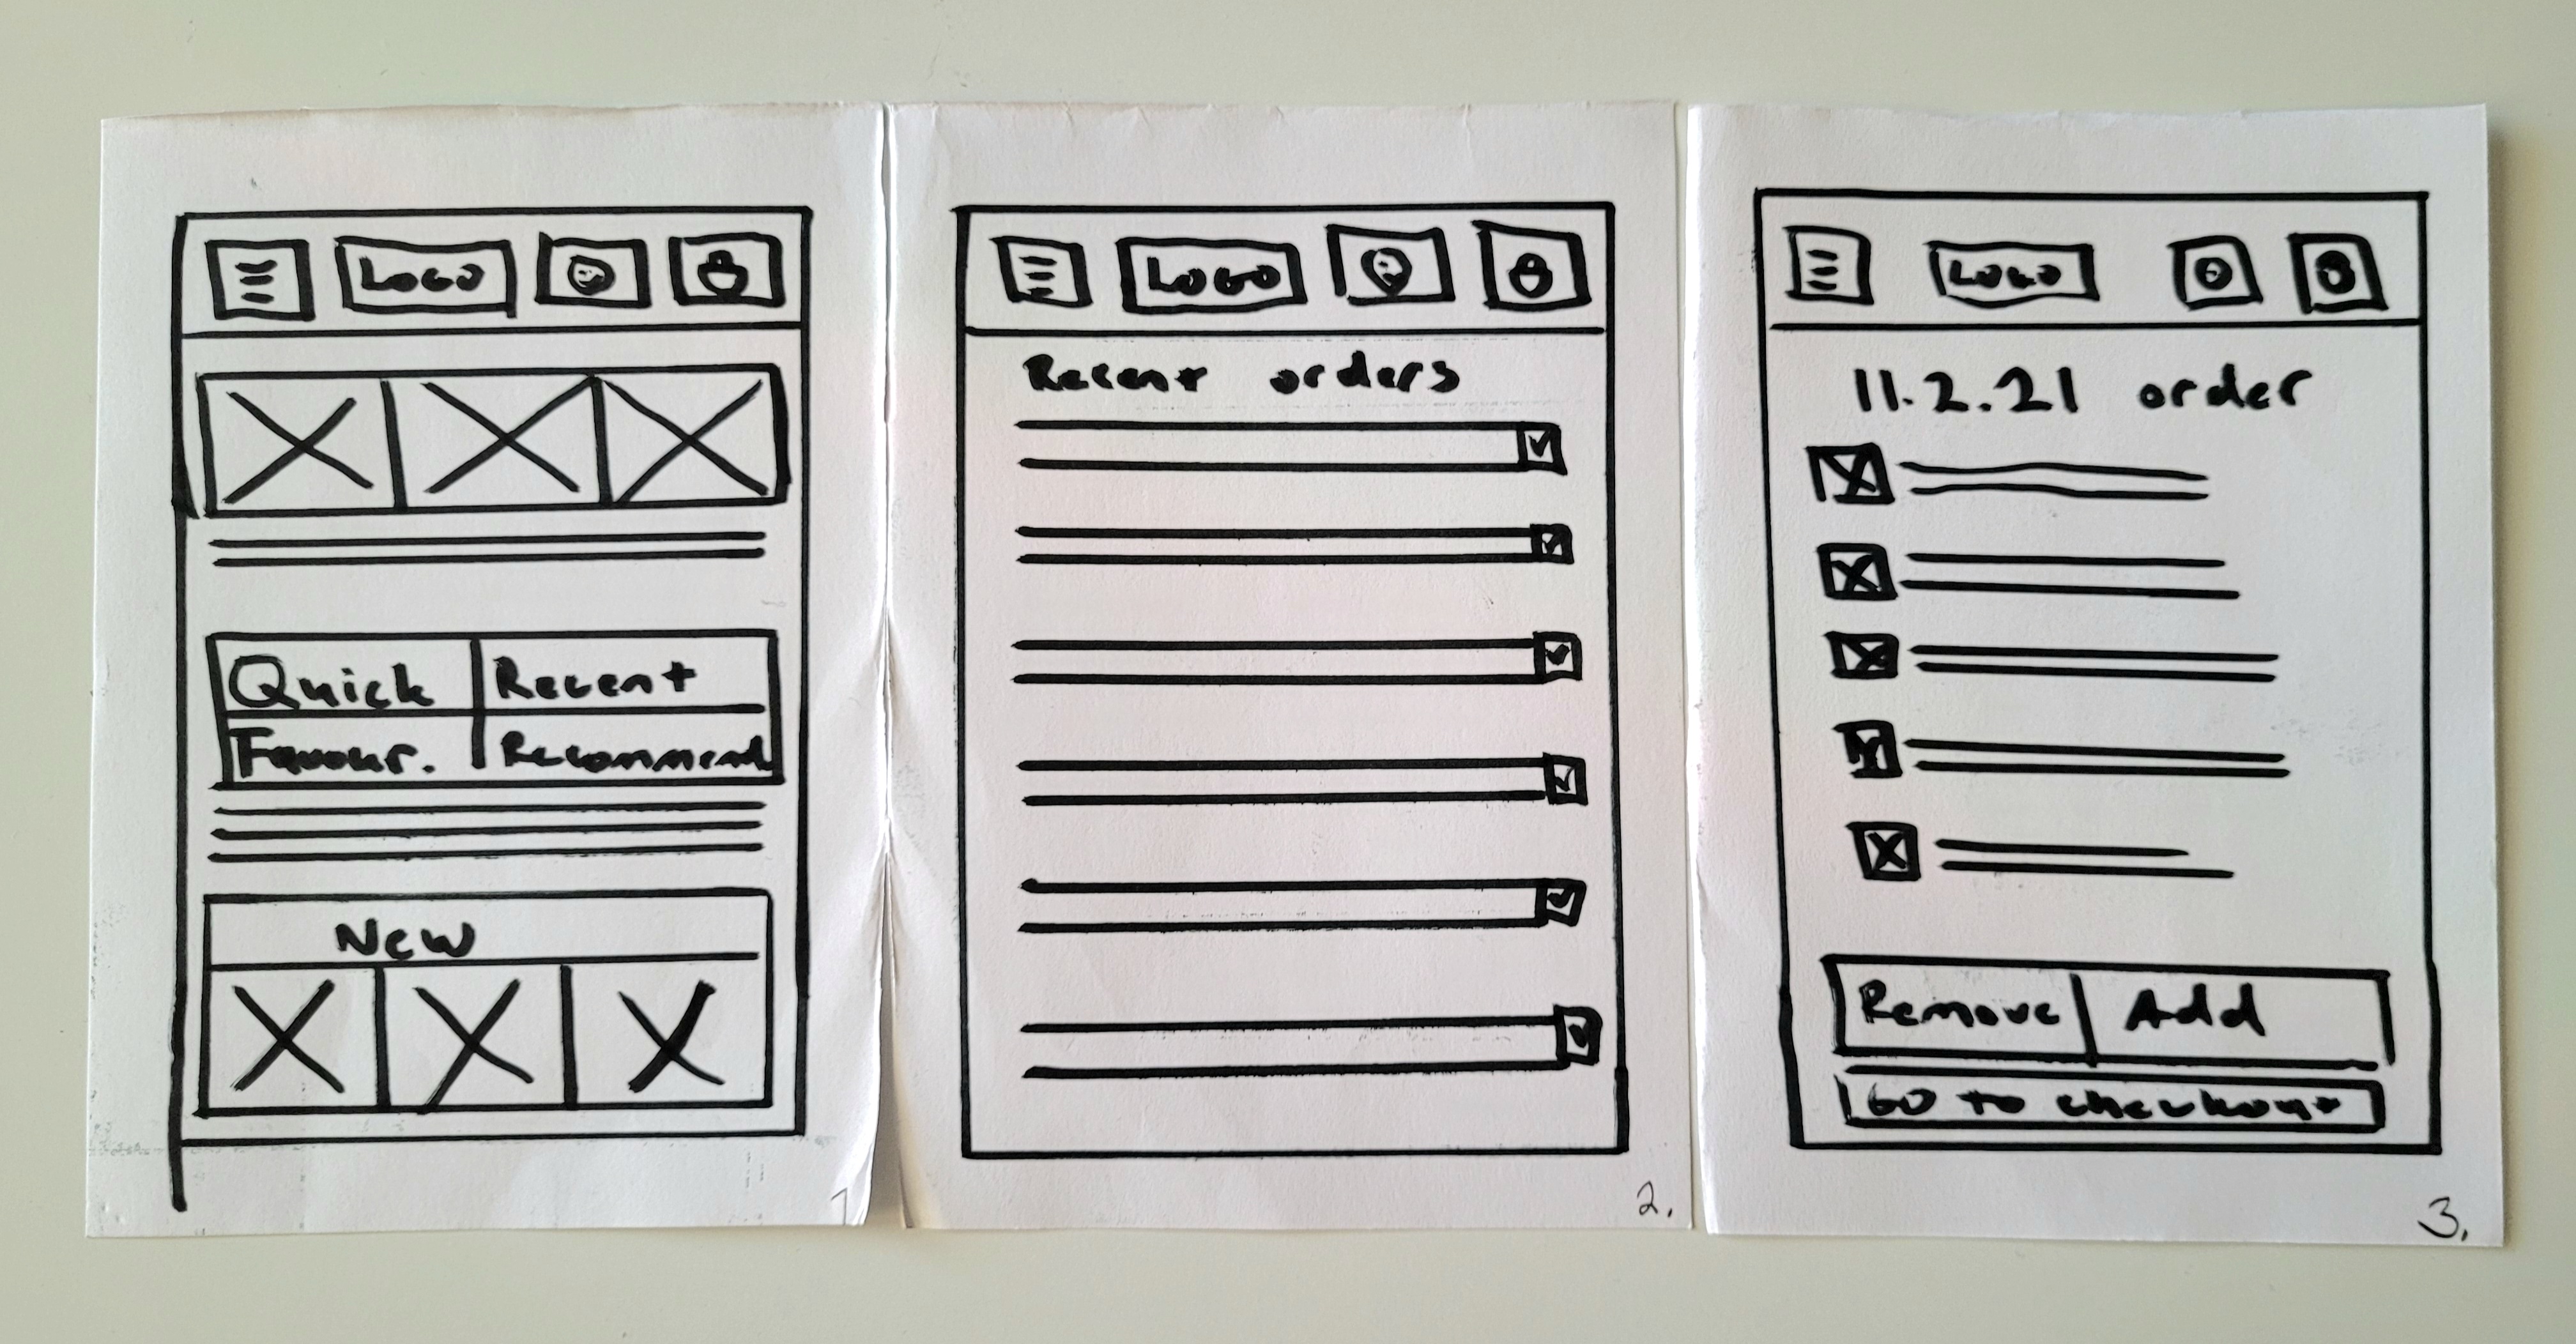 LOGO
Quick Recent
Favour. Recommend
New
1
LOGO
Recent orders
2.
LOGO
11.2.21 order
Remove Add
Go to checkout
3.